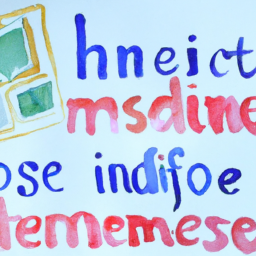 hneict
msdine
ose indife
temmese